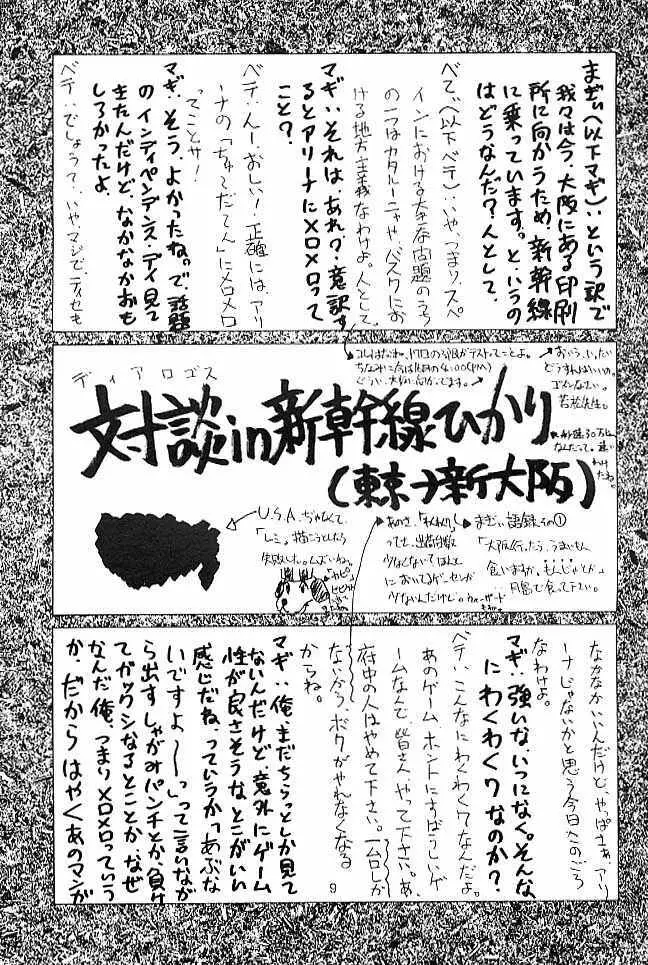 まぎぃ(以下マギ):という訳で
我々は今、大阪にある印刷
所に向かうため、新幹線
に乗っています。と、いうの
はどうなんだ?人として。
べてぃ(以下ベテ):いや、つまり、スペ
インにおける大きな問題のうち
の一つはカタルーニャや、バスクにお
ける地方主義なわけよ。人として
マギ:それは、あれ?意訳す
るとアリーナにメロメロって
こと?
ベテ:んー、おしい!正確には、アリ
ーナの「ちゅてだてん」にメロメロ
ってことサ!
マギ:そう、よかったね。で、話題
のインディペンデンス・デイ見て
きたんだけど、なかなかおも
しろかったよ。
ベテ:でしょうて、いやマジで、ティセも
ディアロゴス
対談in新幹線ひかり
(東京→新大阪)
どういう、大阪に向かってます。
ゴメンなさい。
若松先生。
U.S.A.ぢゃなくて、
「レミ」描こうとしたら
失敗した。ムズいねっ
まぎぃ語録その①
「大阪行ったら、うまいもん
食いますか、もんじゃとか」
月島で食って下さい。
なかなかいいんだけど、やっぱさぁ、アリ
ーナじゃないかと思う今日このごろ
なわけよ。
マギ:強いな、いつになく。そんな
にわくわく7なのか?
ベテ:こんなにわくわく7なんだよ。
あのゲームホントにすばらしいゲ
ームなんで、皆さん、やって下さい。あ、
府中の人はやめて下さい。一台しか
ないから、ボクがやれなくなる
からね。
マギ:俺、まだちらっとしか見て
ないんだけど、意外にゲーム
性が良さそうな、とこがいい
感じだね、っていうか「あぶな
いですよ〜〜」って言いなが
ら出すしゃがみパンチとか、負け
てガックシなるとことか、なぜ
なんだ俺、つまりメロメロっていう
か、だからはやくあのマンが
9